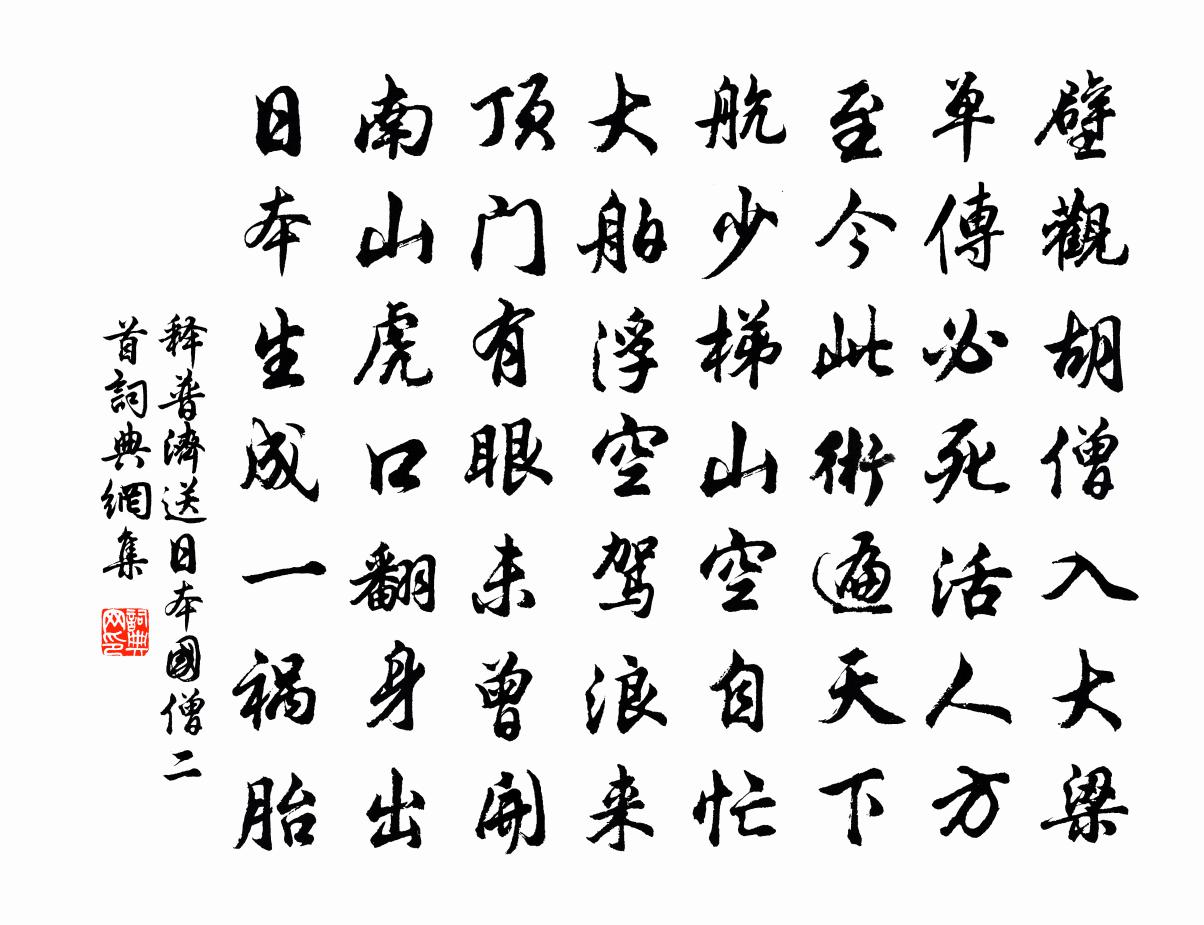 壁觀胡僧入大梁
单傳必死活人方
至今此術遍天下
航少梯山空自忙
大舶浮空驾浪来
顶门有眼未曾開
南山虎口翻身出
日本生成一祸胎
释普濟送日本國僧二
首詞典網集
詞典
网印